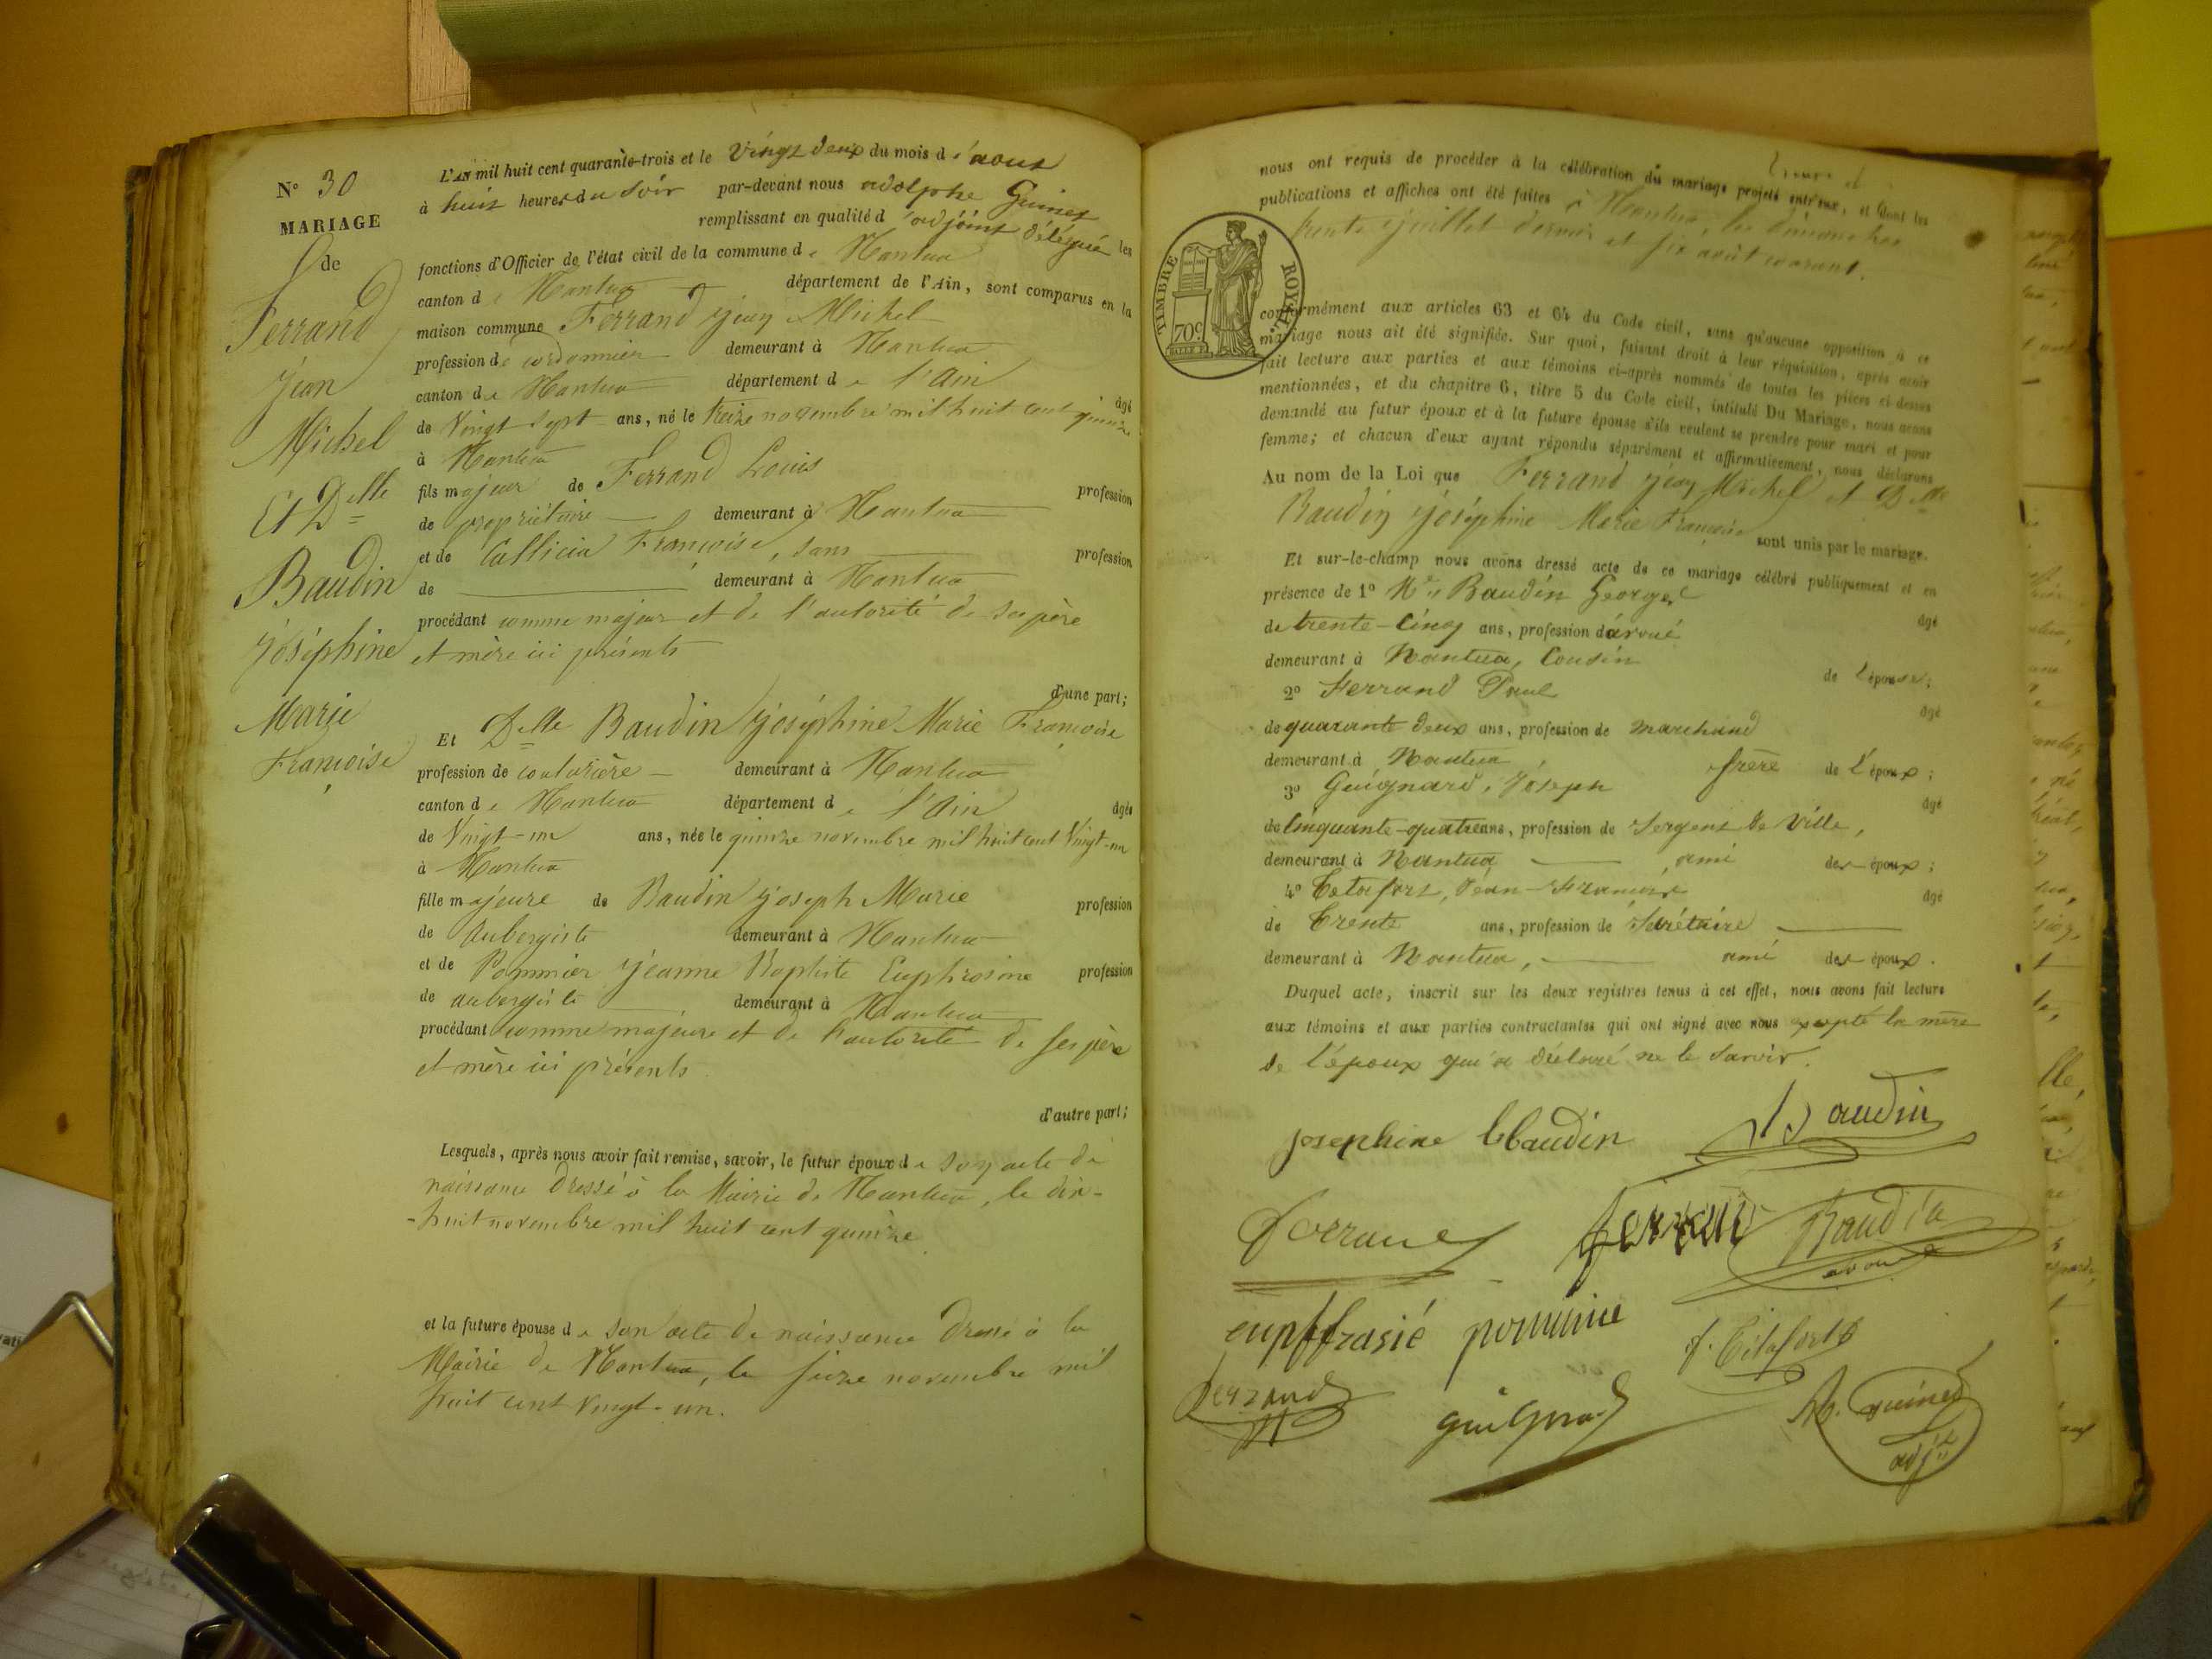 N° 30
MARIAGE
de
Ferrand
Jean
Michel
Et Delle
Baudin
Joséphine
Marie
Françoise
L'an mil huit cent quarante-trois et le Vingt deux du mois d'aout
à huit heures du soir par-devant nous adolphe Guinet
remplissant en qualité d'adjoint délégué les
fonctions d'Officier de l'état civil de la commune de Nantua
canton de Nantua département de l'Ain, sont comparus en la
maison commune Ferrand Jean Michel
profession de cordonnier demeurant à Nantua
canton de Nantua département de l'Ain âgé
de Vingt sept ans, né le treize novembre mil huit cent quinze
à Nantua
fils majeur de Ferrand Louis profession
de propriétaire demeurant à Nantua
et de Françoise, sans profession
de demeurant à Nantua
procédant comme majeur et de l'autorité de ses père
et mère ici présents
d'une part;
Et Delle Baudin Joséphine Marie Françoise
profession de couturière demeurant à Nantua
canton de Nantua département de l'Ain âgée
de Vingt-un ans, née le quinze novembre mil huit cent Vingt-un
à Nantua
fille majeure de Baudin Joseph Marie profession
de Aubergiste demeurant à Nantua
et de Pommier Jeanne Baptiste Euphrosine profession
de aubergiste demeurant à Nantua
procédant comme majeure et de l'autorité de ses père
et mère ici présents
d'autre part;
Lesquels, après nous avoir fait remise, savoir, le futur époux de son acte de
naissance dressé à la Mairie de Nantua, le dix-
-huit novembre mil huit cent quinze
et la future épouse de son acte de naissance dressé à la
Mairie de Nantua, le seize novembre mil
huit cent vingt-un.
nous ont requis de procéder à la célébration du mariage projeté entr'eux, et dont les
publications et affiches ont été faites à Nantua, les dimanches
trente juillet dernier et six août courant.
TIMBRE ROYAL
70c
conformément aux articles 63 et 64 du Code civil, sans qu'aucune opposition à ce
mariage nous ait été signifiée. Sur quoi, faisant droit à leur réquisition, après avoir
fait lecture aux parties et aux témoins ci-après nommés de toutes les pièces ci-dessus
mentionnées, et du chapitre 6, titre 5 du Code civil, intitulé Du Mariage, nous avons
demandé au futur époux et à la future épouse s'ils veulent se prendre pour mari et pour
femme; et chacun d'eux ayant répondu séparément et affirmativement, nous déclarons
Au nom de la Loi que Ferrand Jean Michel et Delle
Baudin Joséphine Marie Françoise sont unis par le mariage.
Et sur-le-champ nous avons dressé acte de ce mariage célébré publiquement et en
présence de 1° Mr Baudin George âgé
de trente-cinq ans, profession d'avoué
demeurant à Nantua, Cousin de l'épouse;
2° Ferrand Paul âgé
de quarante deux ans, profession de marchand
demeurant à Nantua frère de l'époux;
3° Guignard, Joseph âgé
de Cinquante-quatre ans, profession de Sergent de Ville,
demeurant à Nantua ami des époux;
4° Tetafort, Jean-François âgé
de Trente ans, profession de Secrétaire
demeurant à Nantua, ami des époux.
Duquel acte, inscrit sur les deux registres tenus à cet effet, nous avons fait lecture
aux témoins et aux parties contractantes qui ont signé avec nous excepté la mère
de l'époux qui a déclaré ne le savoir.
josephine Baudin
Baudin
ferrand
ferrand
Baudin
avoué
eupffrasié pommie
f. Tétafort
ferrand
guignard
Ad. guinet
adjt